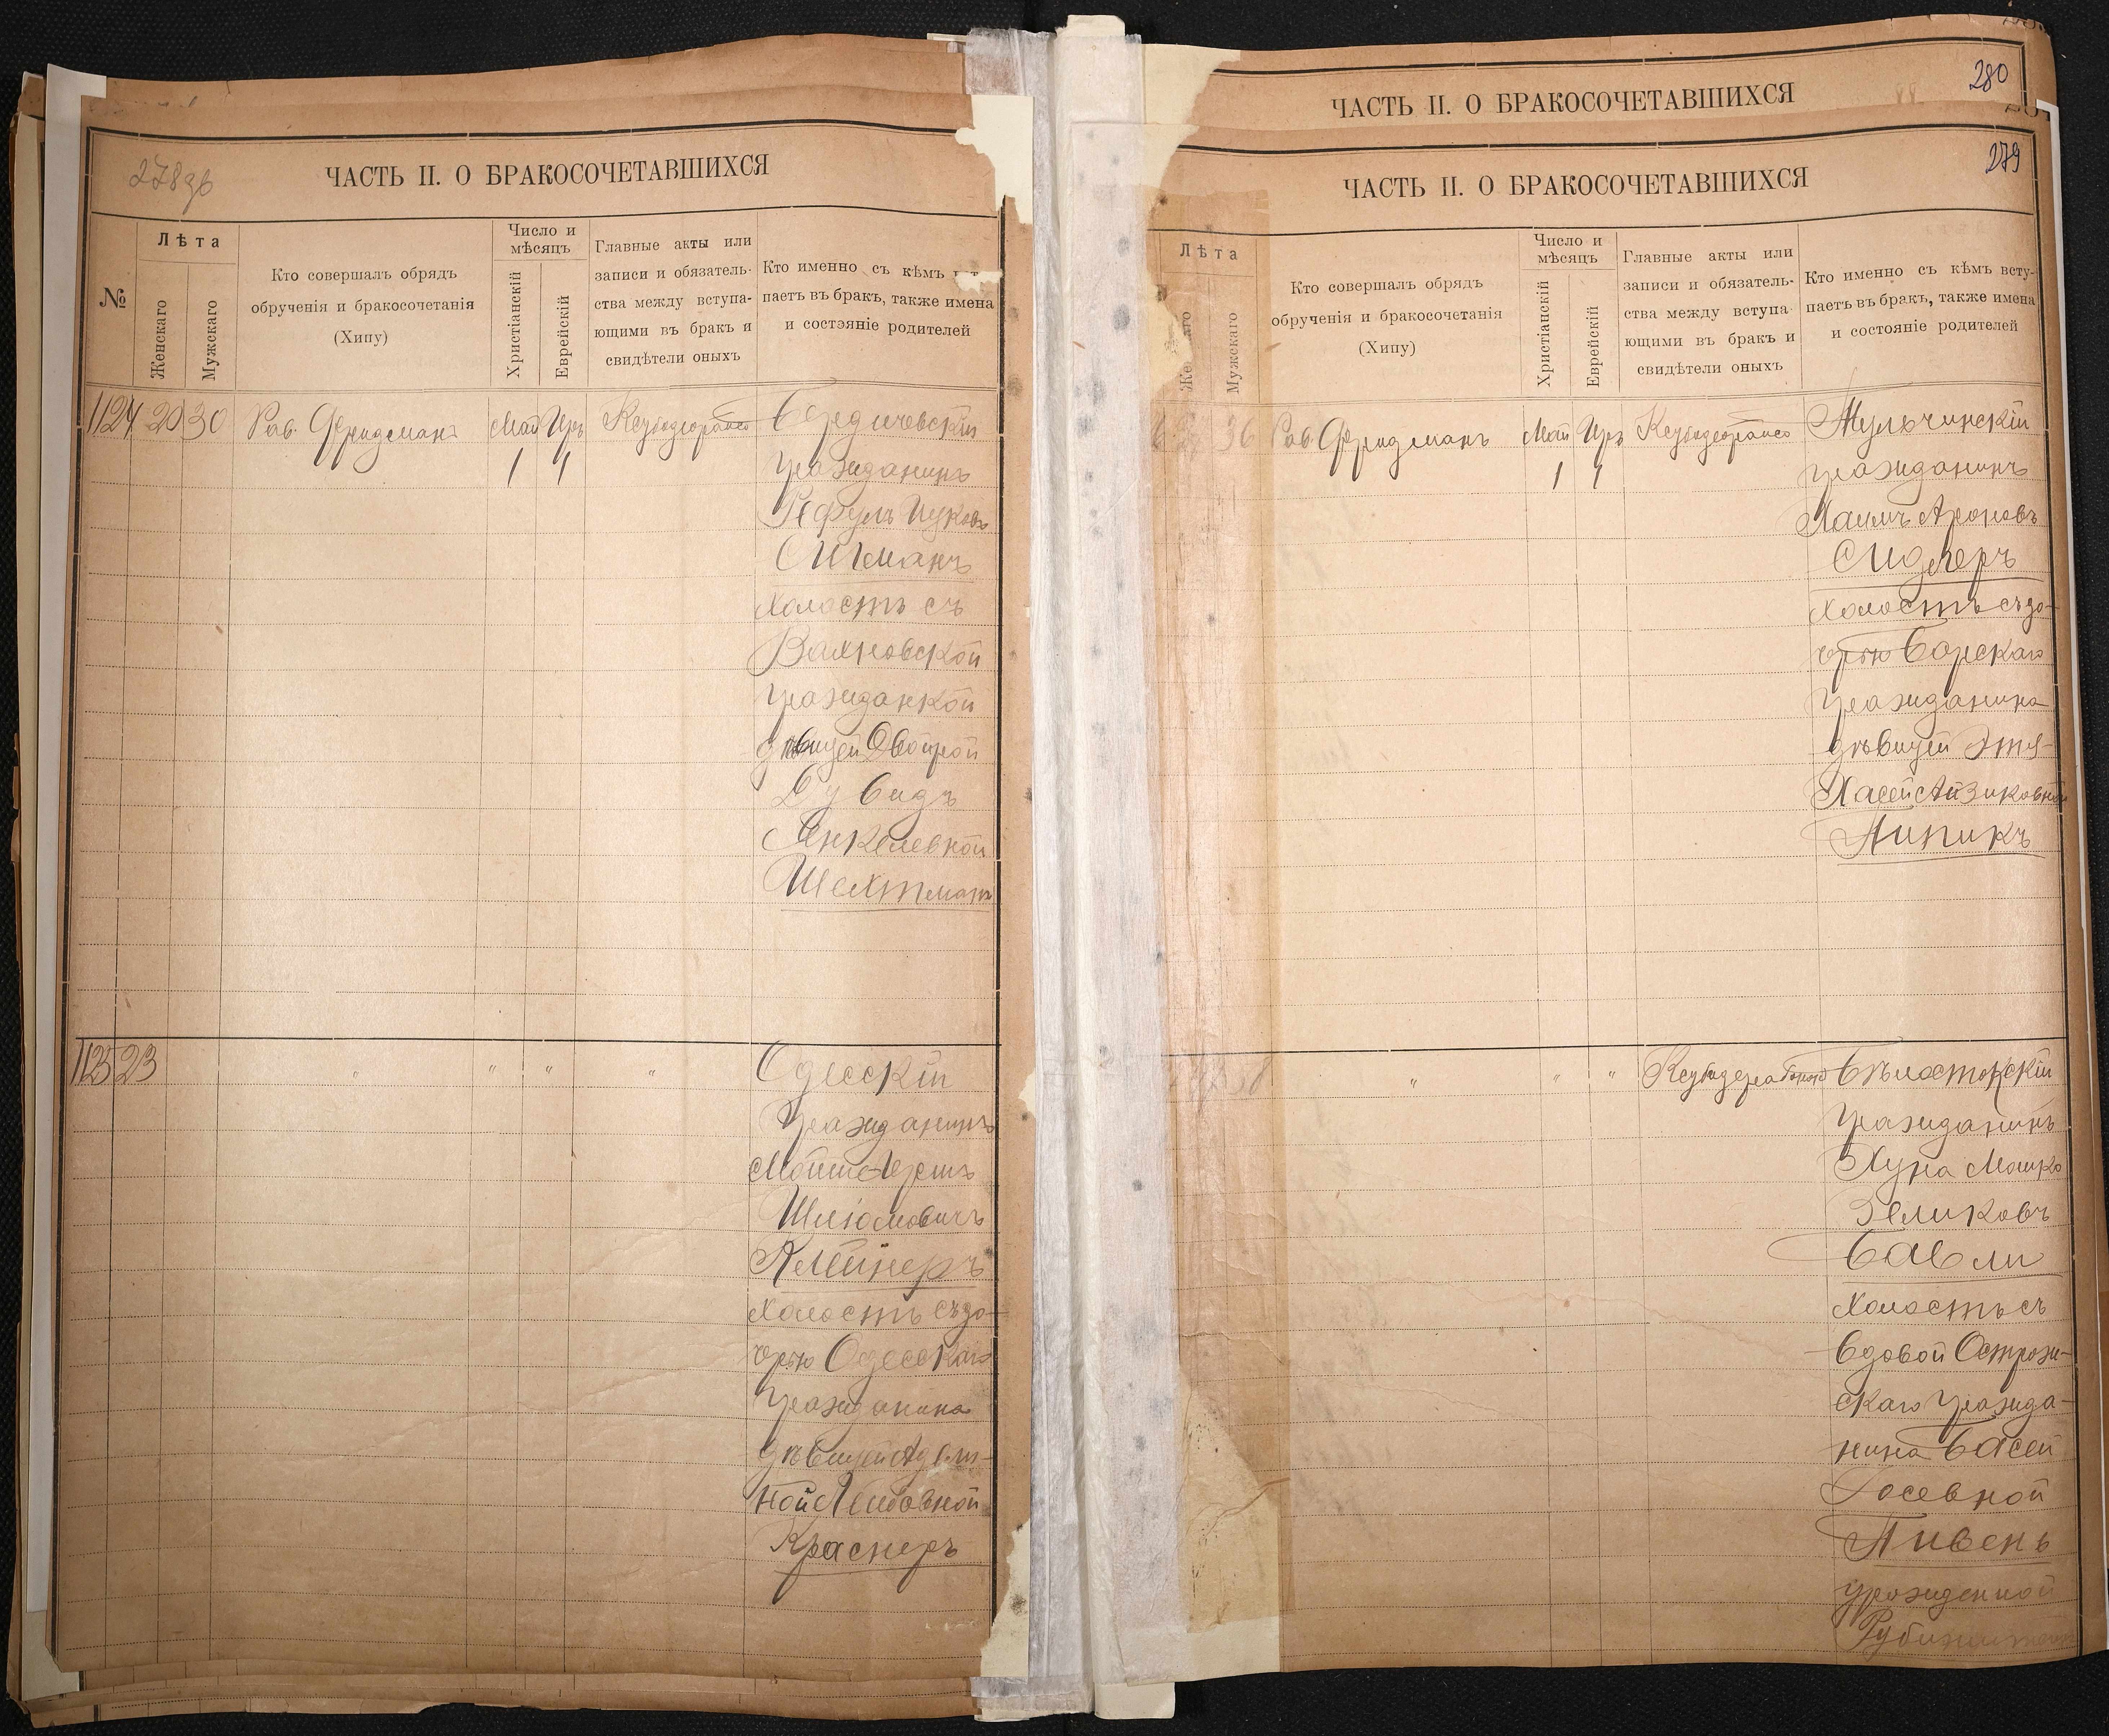 280
ЧАСТЬ II. О БРАКОСОЧЕТАВШИХСЯ
278 об
ЧАСТЬ II. О БРАКОСОЧЕТАВШИХСЯ
№
Лѣта
Женскаго
Мужскаго
Кто совершалъ обрядъ
обрученія и бракосочетанія
(Хипу)
Число и
мѣсяцъ
Христіанскій
Еврейскій
Главные акты или
записи и обязатель-
ства между вступа-
ющими въ бракъ и
свидѣтели оныхъ
Кто именно съ кѣмъ
паетъ въ бракъ, также имена
и состэяніе родителей
1124 20 30 Рав. Фридманъ Май Иръ
1 1
Бердичевскій
гражданинъ
Ицковъ
холостъ съ
Вахновской
гражданкой
дѣвицей Двойрой
Дувидъ
Янкелевной
Шехтманъ
1125 23 " " " "
Одесскій
гражданинъ
Мойше Гершъ
Шліомовичъ
Клейнеръ
холостъ съ до-
черью Одесскаго
гражданина
дѣвицей Адель-
ной Лейбовной
Краснеръ
279
ЧАСТЬ II. О БРАКОСОЧЕТАВШИХСЯ
Лѣта
Мужскаго
Кто совершалъ обрядъ
обрученія и бракосочетанія
(Хипу)
Число и
мѣсяцъ
Христіанскій
Еврейскій
Главные акты или
записи и обязатель-
ства между вступа-
ющими въ бракъ и
свидѣтели оныхъ
Кто именно съ кѣмъ всту-
паетъ въ бракъ, также имена
и состояніе родителей
36 Рав. Фридманъ Май Иръ
1 1
Тульчинскій
гражданинъ
Хаимъ Ароновъ
Сидлеръ
холостъ съ до-
черью Барскаго
гражданина
дѣвицей Этя-
Хасей Айзиковной
Липикъ
" " "
Бѣлостокскій
гражданинъ
Хуна Мошко
Зеликовъ
Бабли
холостъ съ
вдовой Острож-
скаго гражда-
нина Басей
Іосевной
Пивень
урожденной